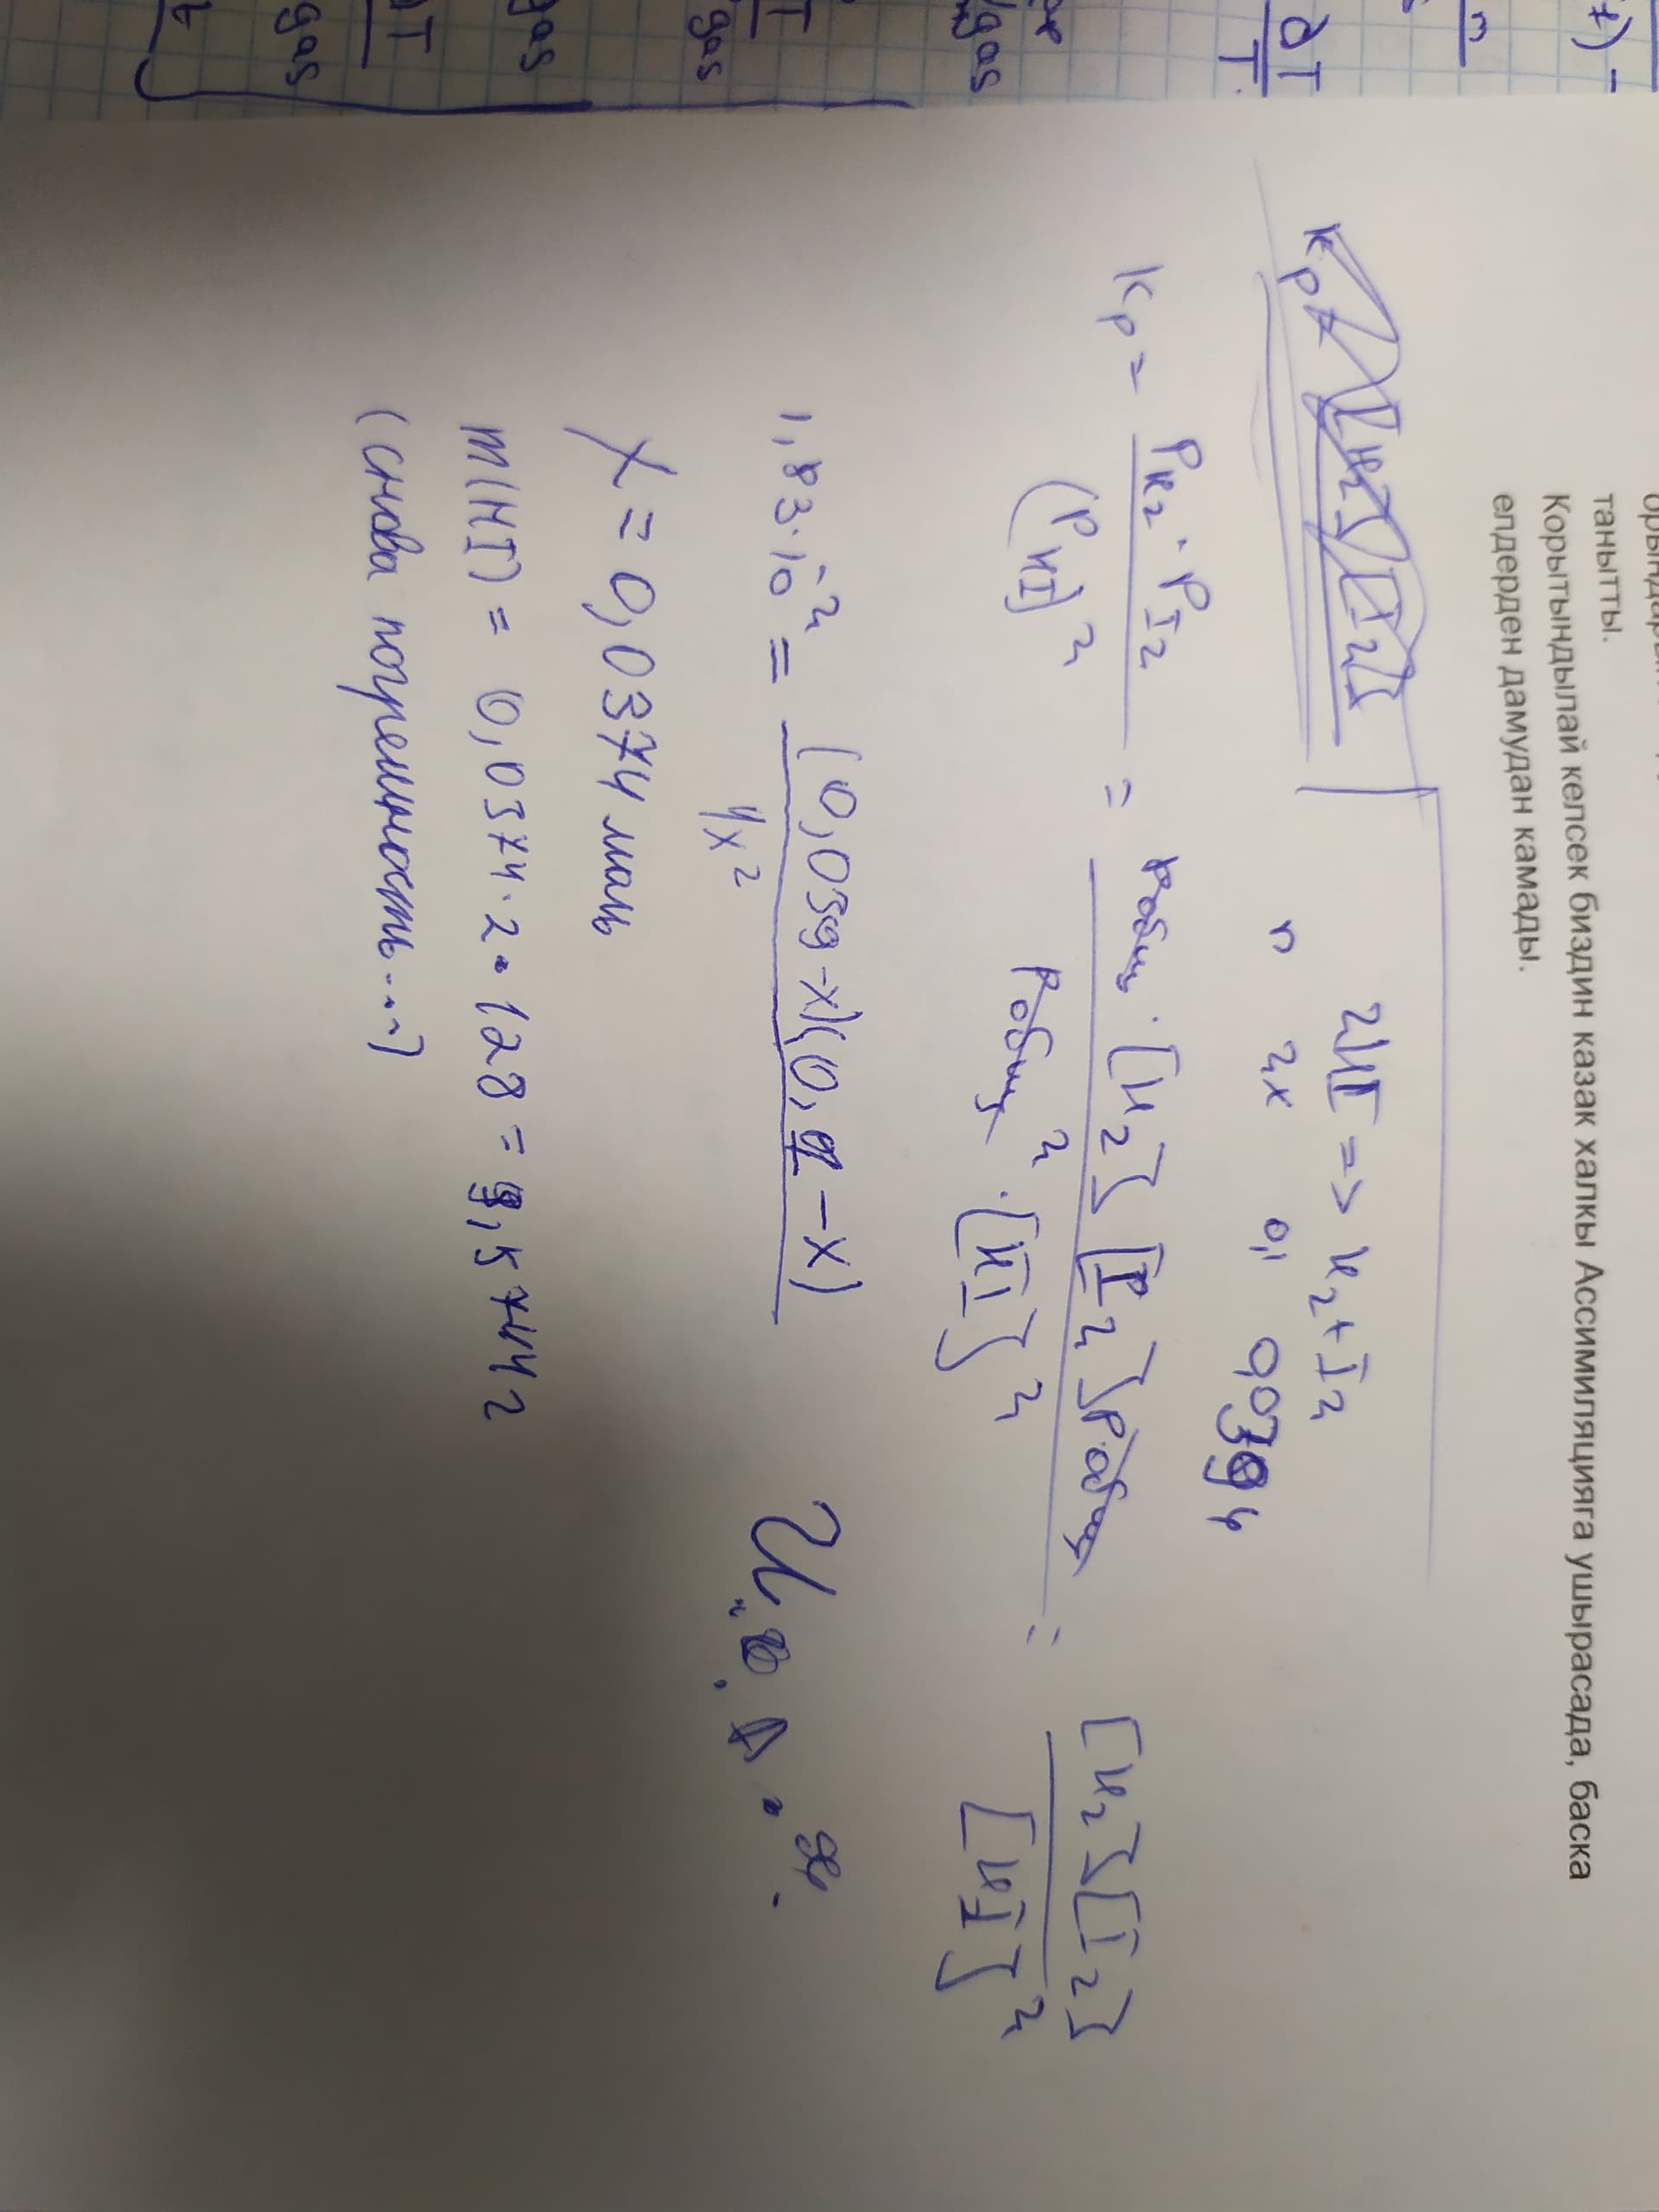 танытты.
Корытындылай кепсек биздин казак халкы Ассимиляцияга ушырасада, баска
елдерден дамудан камады.
2HI => H2 + I2
n 2x 0,1 0,0394
Kp = PH2 · PI2 / (PHI)² = Pобщ · [H2] [I2] Pобщ / Pобщ² · [HI]² = [H2][I2] / [HI]²
1,83·10⁻² = (0,039-x)(0,1-x) / 4x²
X = 0,0374 моль
m(HI) = 0,0374·2·128 = 9,5744 г
(снова погрешность...)